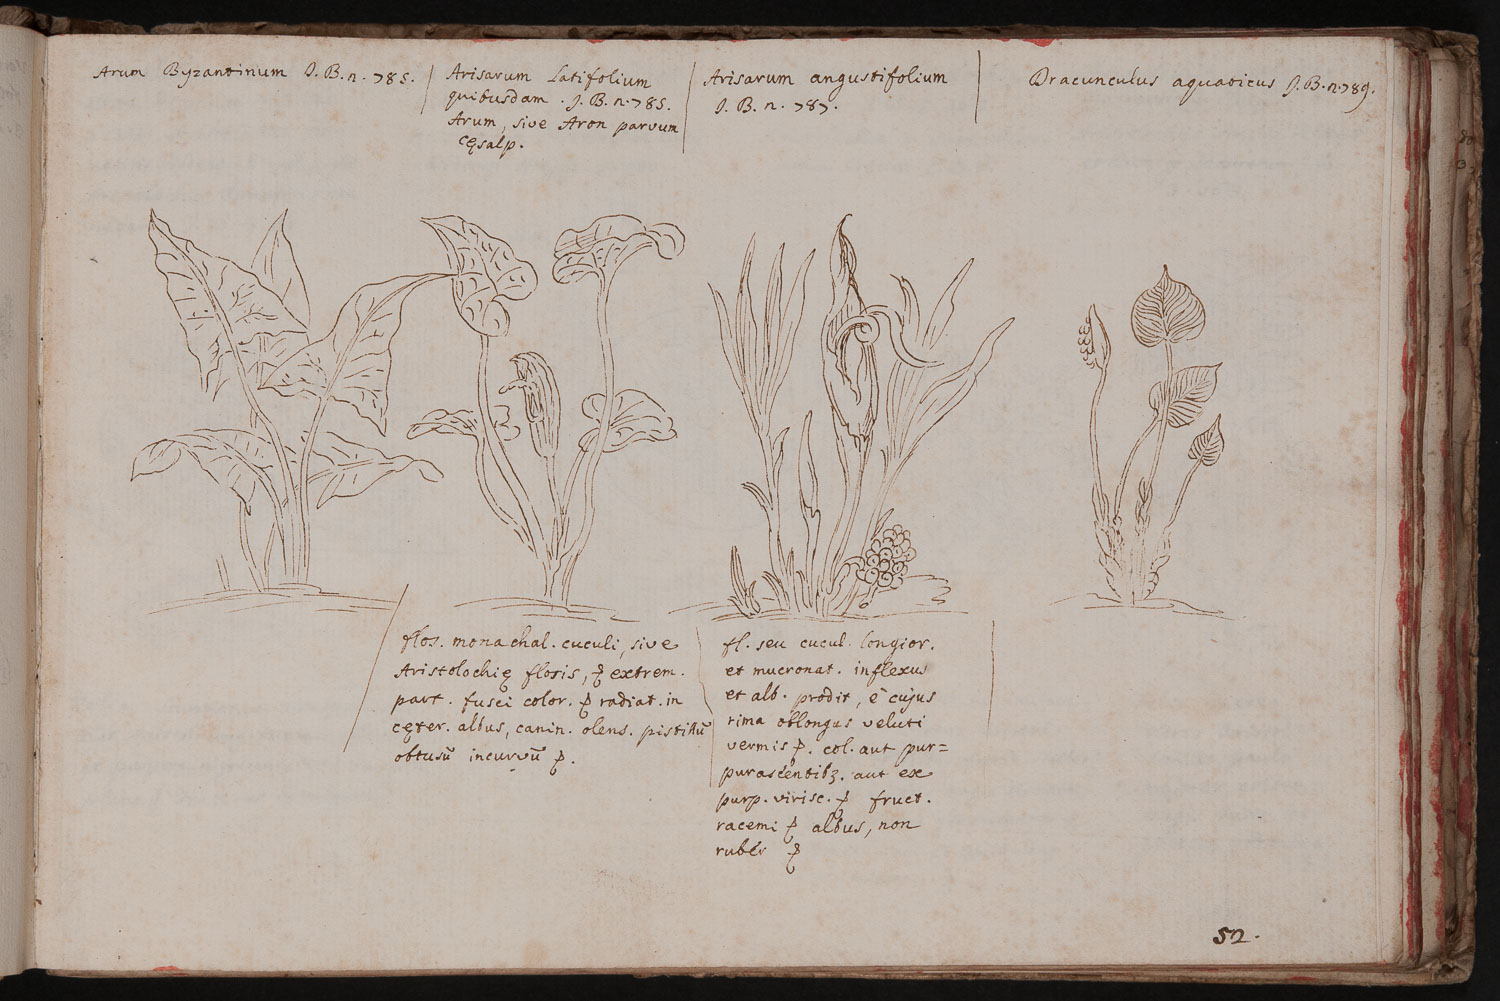 Arum Byzantinum J. B. n. 785.
Arisarum Latifolium
quibusdam . J. B. n. 785.
Arum, sive Aron parvum
Cęsalp.
Arisarum angustifolium
J. B. n. 787.
Dracunculus aquaticus J. B. n. 789.
flos. monachal. cuculi, sive
Aristolochię floris, extrem.
part. fusci color. radiat. in
cęter. albus, canin. olens. pistillū
obtusū incurvū
fl. seu cucul. longior.
et mucronat. inflexus
et alb. prodit, ē cujus
rima oblongus veluti
vermis col. aut pur=
purascentibꝫ. aut ex
purp. virisc. fruct.
racemi albus, non
ruber
52.